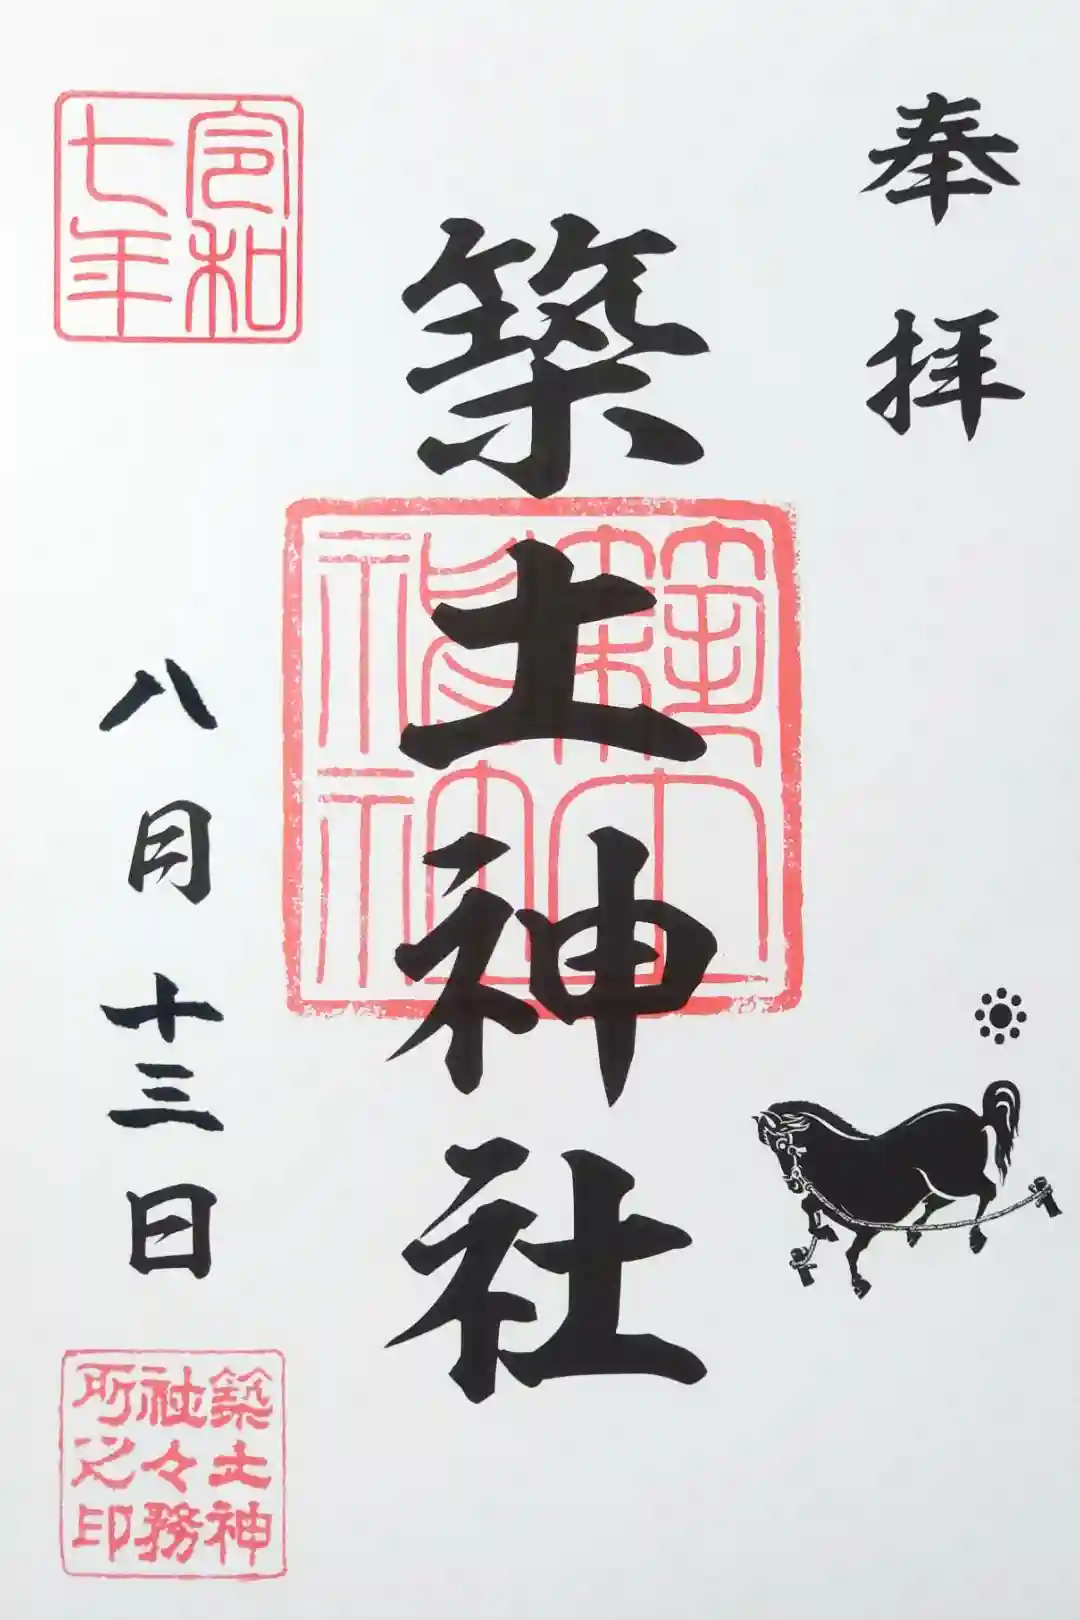 奉拝
築土神社
築土神社
令和
七年
八月十三日
築土神
社々務
所之印